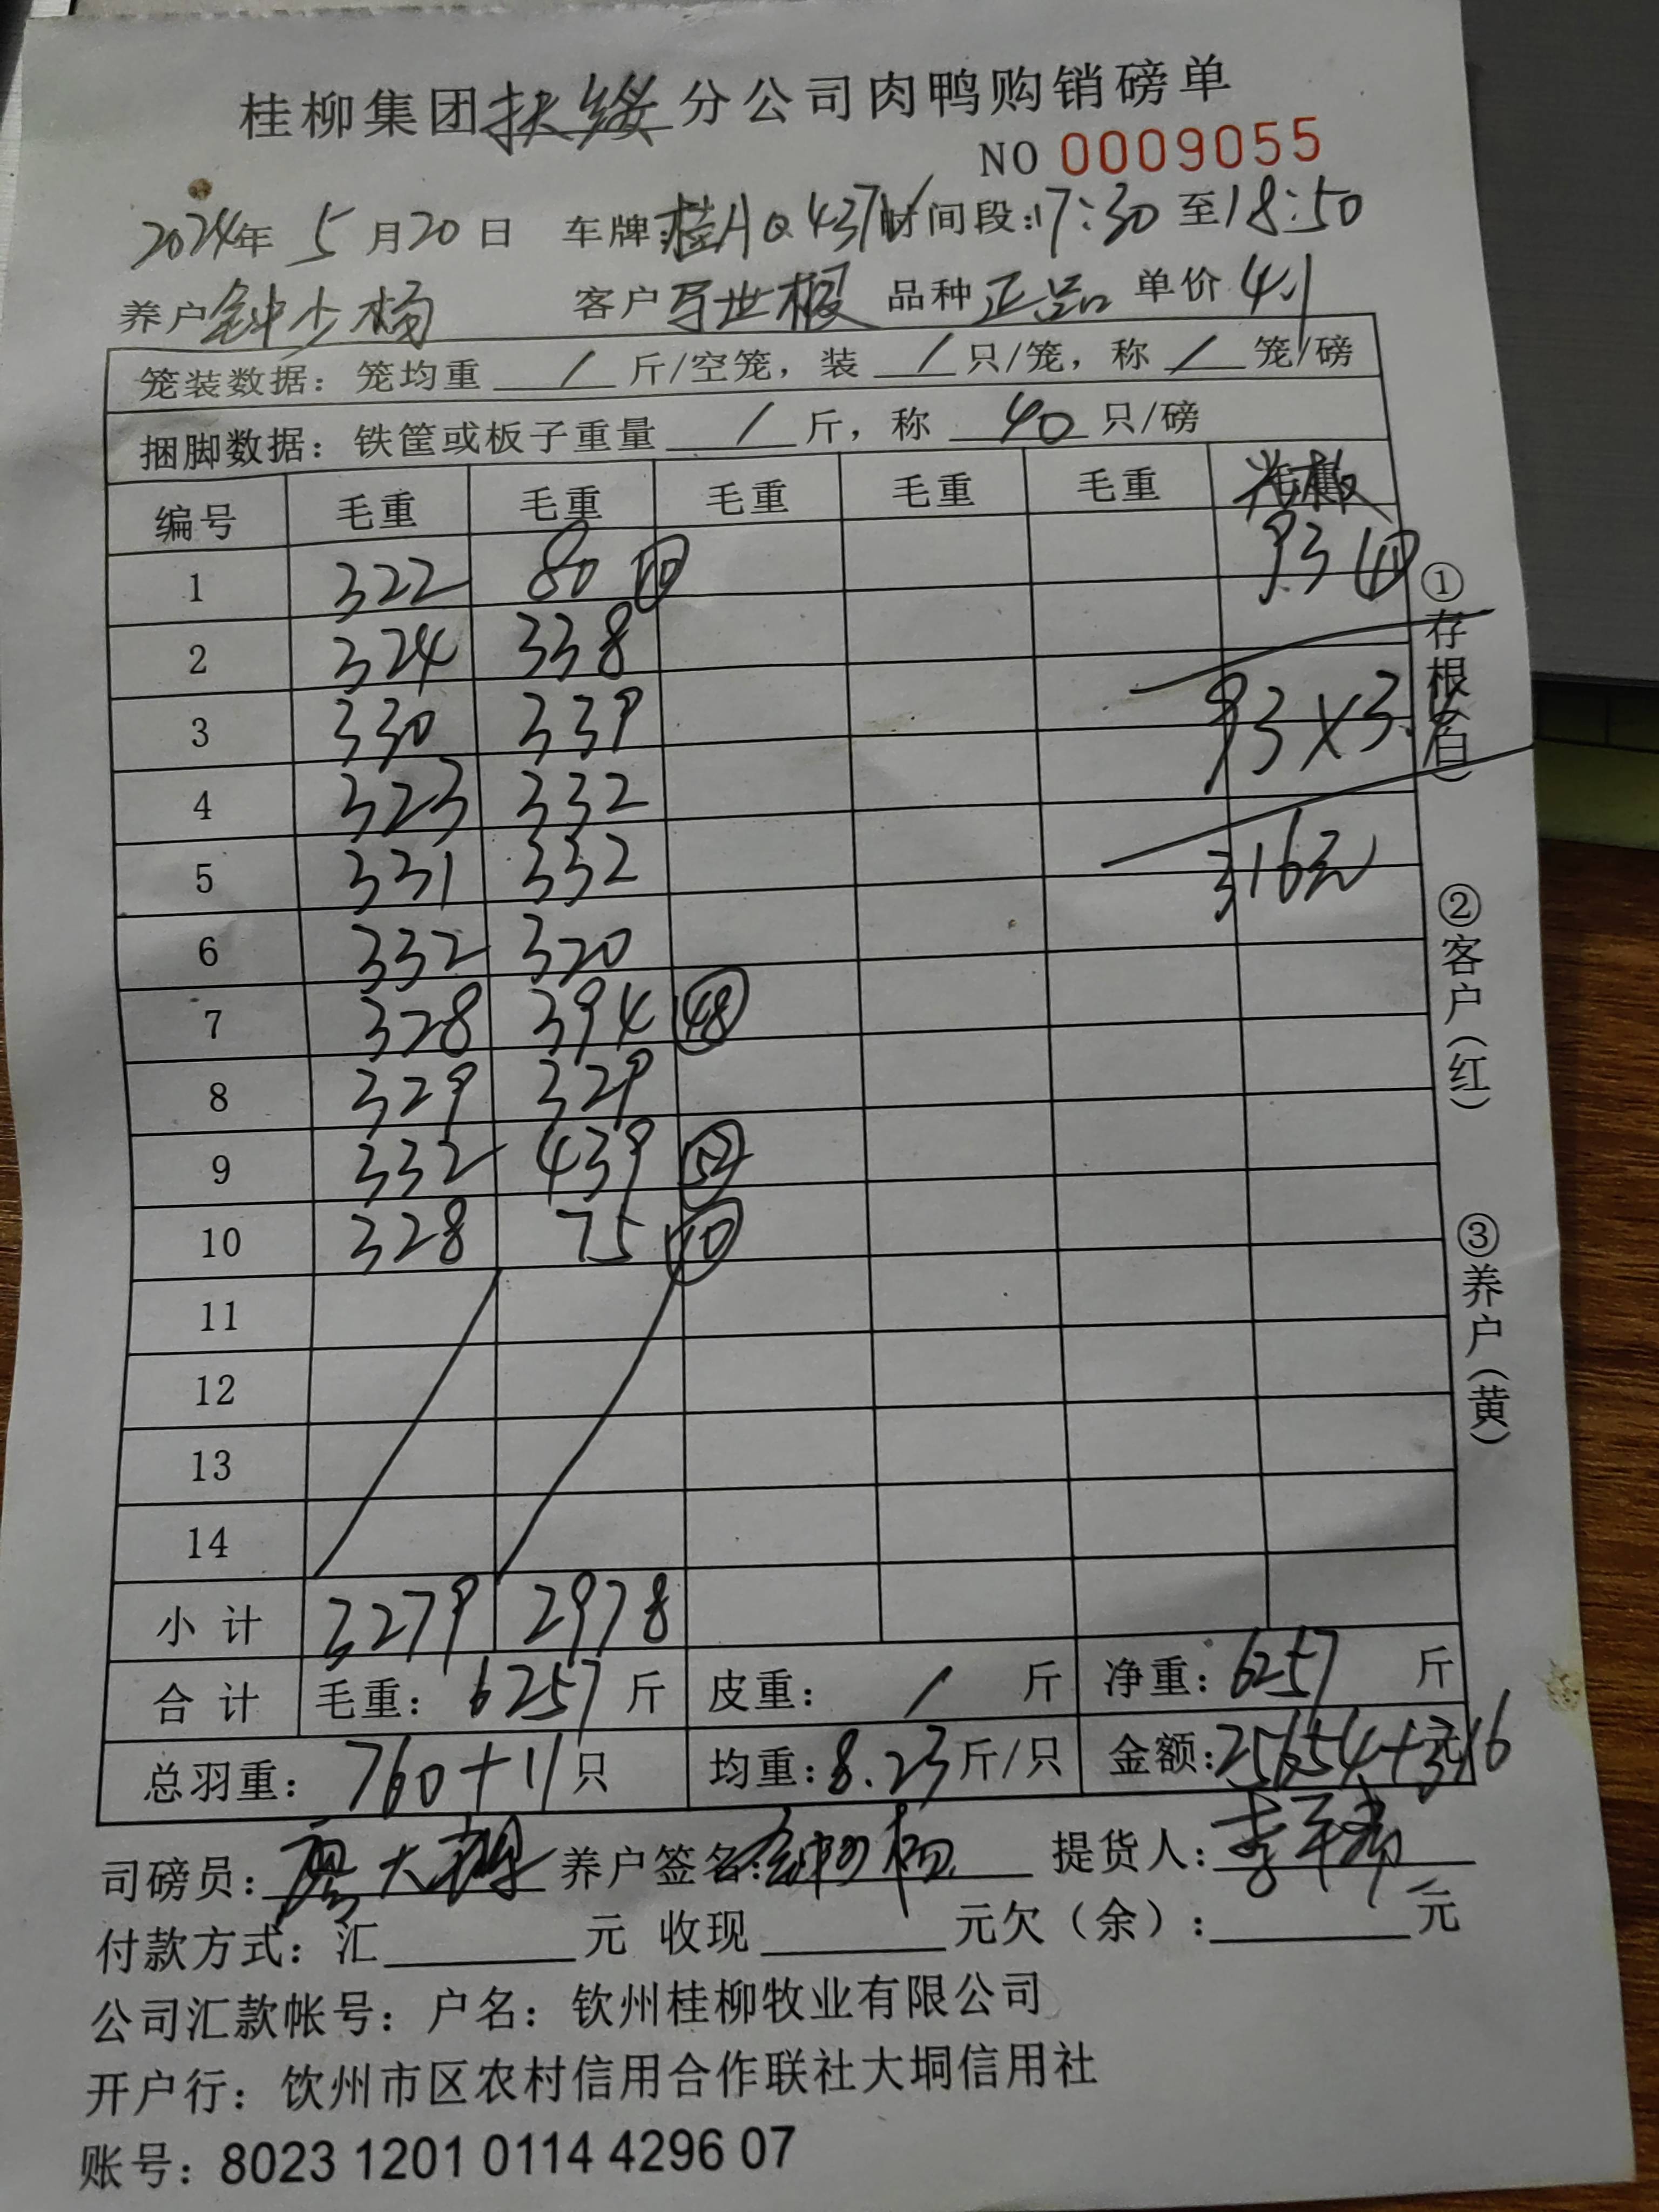 桂柳集团扶绥分公司肉鸭购销磅单
NO 0009055
2024年 5月20日 车牌:桂AQ437V 时间段:17:30至18:50
养户钟少杨 客户 世根 品种正品 单价4.1
笼装数据：笼均重 / 斤/空笼，装 / 只/笼，称 / 笼/磅
捆脚数据：铁筐或板子重量 / 斤，称 40 只/磅
编号 毛重 毛重 毛重 毛重 毛重
1 322 80 ⑩ 93 ⑪
2 324 338
3 330 339 93×3.4
4 323 332
5 331 332 316元
6 332 320
7 328 394 ㊽
8 329 329
9 332 439
10 328 75 ⑩
11
12
13
14
小计 3279 2978
合计 毛重：6257斤 皮重： / 斤 净重：6257 斤
总羽重：760+11只 均重：8.23斤/只 金额：25654+316
司磅员： 大 养户签名：钟少杨 提货人：李
付款方式：汇 元 收现 元欠（余）： 元
公司汇款帐号：户名：钦州桂柳牧业有限公司
开户行：钦州市区农村信用合作联社大垌信用社
账号：8023 1201 0114 4296 07
①存根（白）
②客户（红）
③养户（黄）